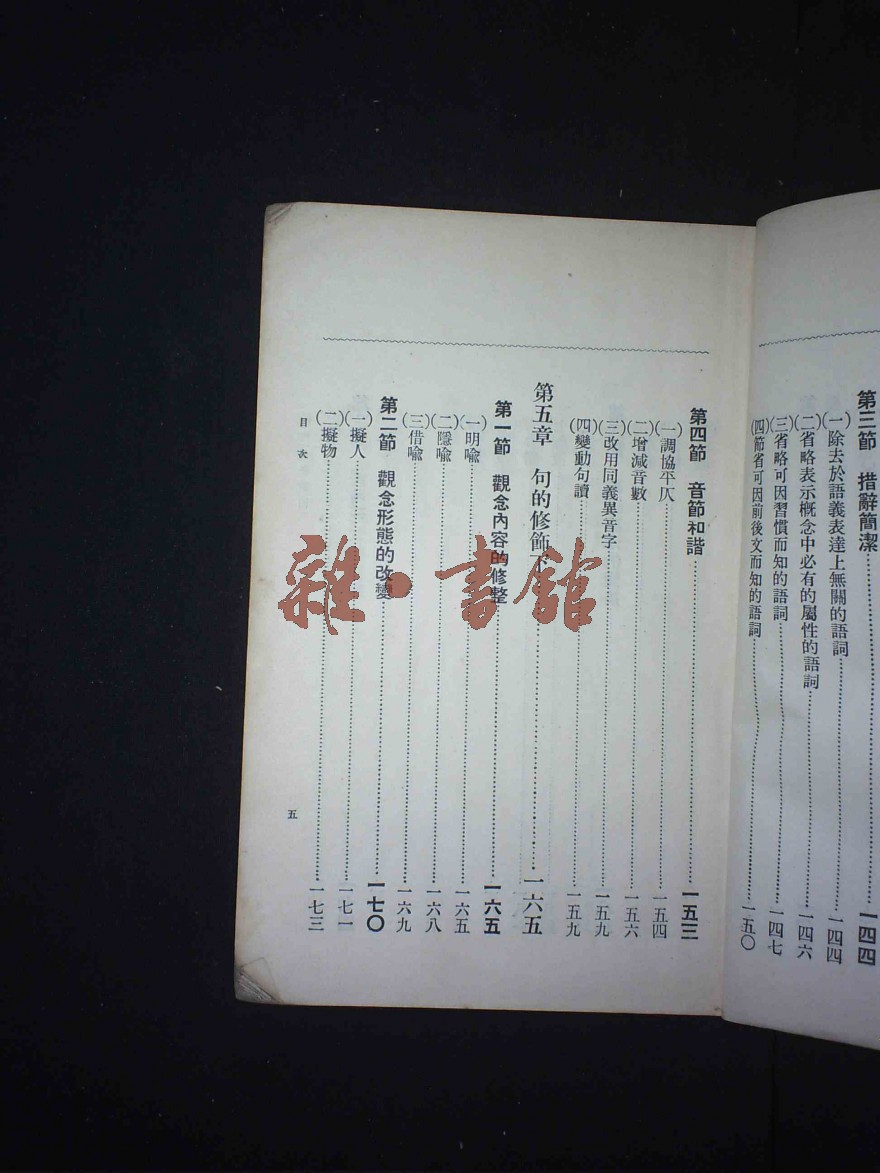 第三節 措辭簡潔……一四四
(一)除去於語義表達上無關的語詞……一四四
(二)省略表示概念中必有的屬性的語詞……一四六
(三)省略可因習慣而知的語詞……一四七
(四)節省可因前後文而知的語詞……一五〇
第四節 音節和諧……一五三
(一)調協平仄……一五四
(二)增減音數……一五六
(三)改用同義異音字……一五九
(四)變動句讀……一五九
第五章 句的修飾下……一六五
第一節 觀念內容的修整……一六五
(一)明喻……一六五
(二)隱喻……一六八
(三)借喻……一六九
第二節 觀念形態的改變……一七〇
(一)擬人……一七一
(二)擬物……一七三
目次
五
雜·書館